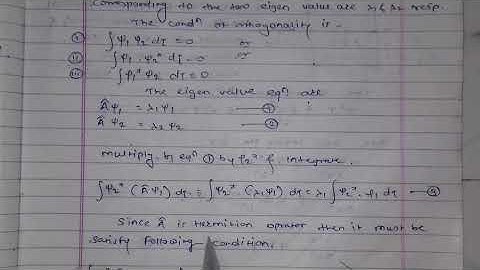 corresponding to the two eigen value are λ1 & λ2 resp.
The condn of orthogonality is -
① ∫ψ1 ψ2 dτ = 0 or
② ∫ψ1 . ψ2* dτ = 0 or
③ ∫ψ1* ψ2 dτ = 0
The eigen value eqn are
Â ψ1 = λ1 ψ1 —— ①
Â ψ2 = λ2 ψ2 —— ②
multiply by eqn ① by ψ2* & integrate.
∫ψ2* (Â ψ1) dτ = ∫ψ2* (λ1 ψ1) dτ = λ1 ∫ψ2* . ψ1 dτ —— ③
Since Â is Hermition oprator then it must be
satisfy following condition.